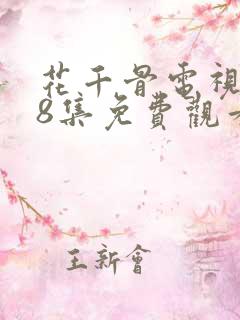 花千骨電視
8集免費觀
王新會